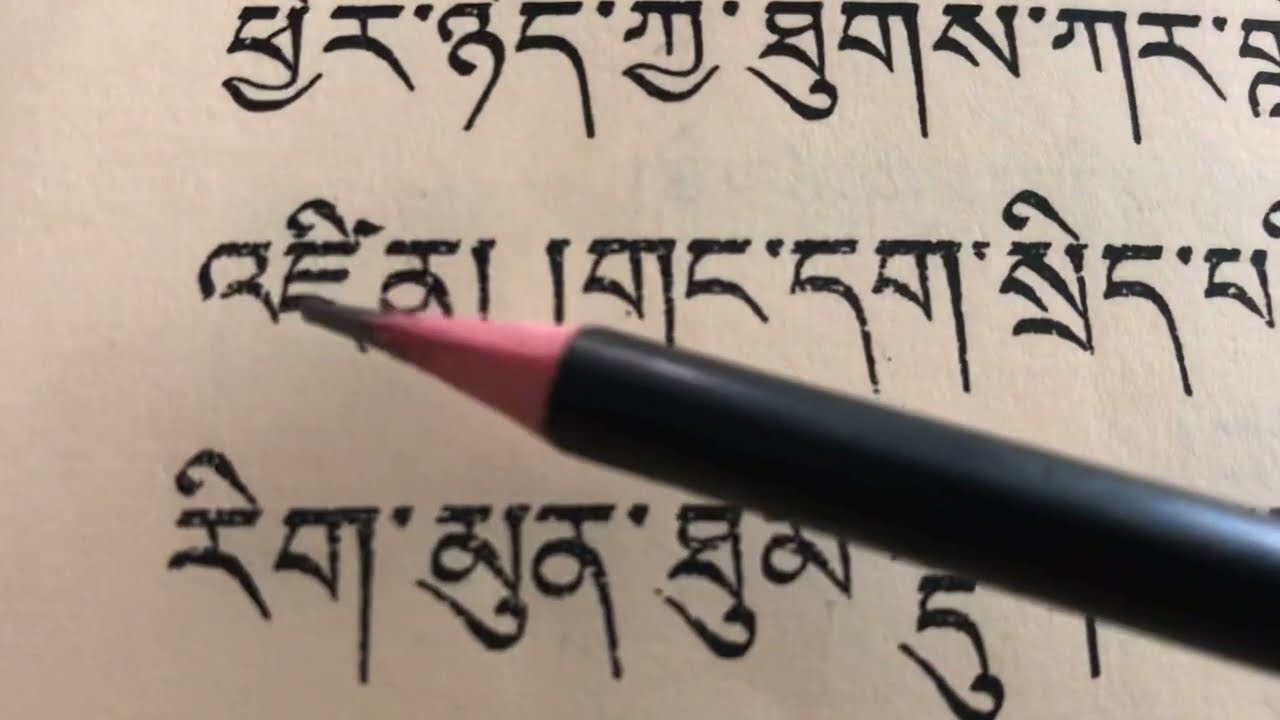 ཕྱིར་ཉིད་ཀྱི་ཐུགས་ཀར་
འཛིན། །གང་དག་སྲིད་
རིག་མུན་ཐུམ